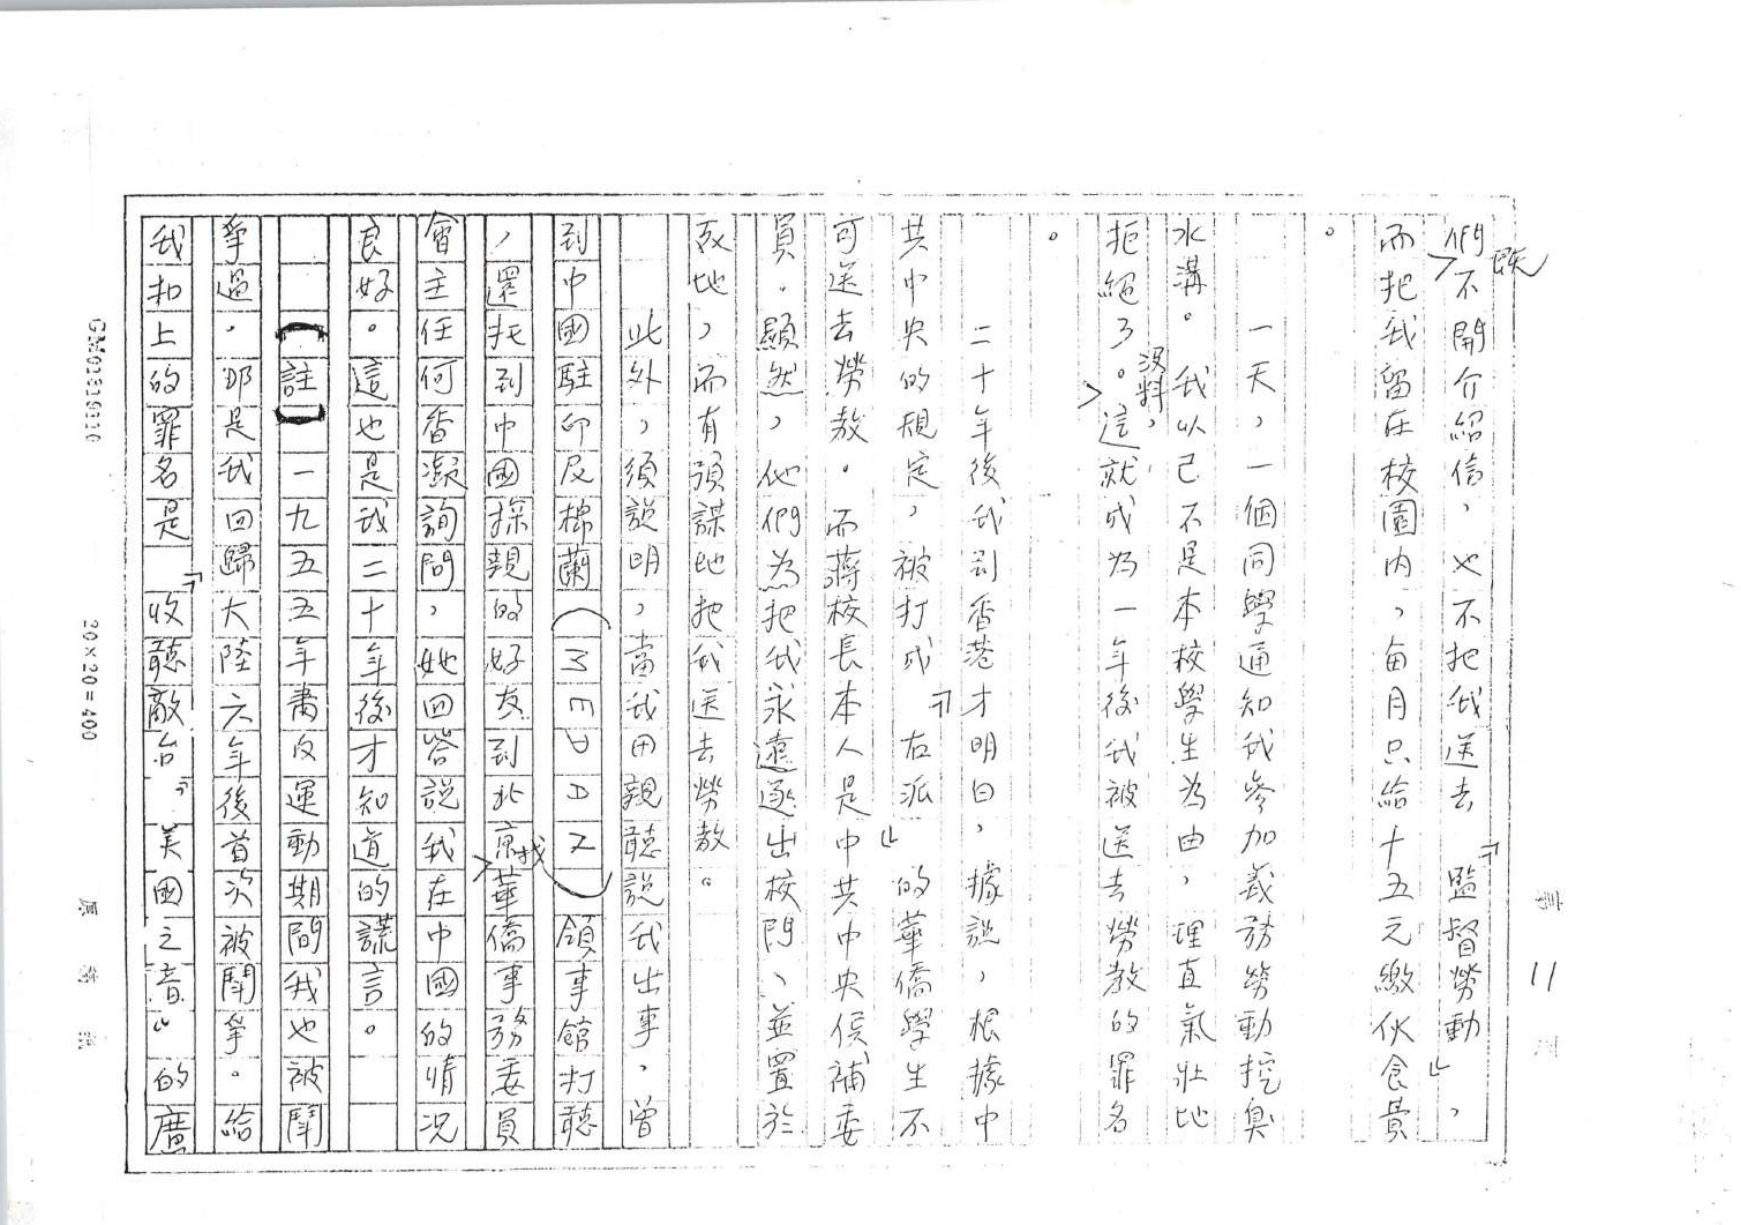 們既不開介紹信，也不把我送去『監督勞動』，
而把我留在校園內，每月只給十五元繳伙食費
。
一天，一個同學通知我參加義務勞動挖臭
水溝。我以己不是本校學生為由，理直氣壯地
拒絕了。沒料，這就成為一年後我被送去勞教的罪名
。
二十年後我到香港才明白，據說，根據中
共中央的規定，被打成『右派』的華僑學生不
可送去勞教。而蔣校長本人是中共中央候補委
員。顯然，他們為把我永遠逐出校門、並置於
死地，而有預謀地把我送去勞教。
此外，須說明，當我母親聽說我出事，曾
到中國駐印尼棉蘭（MEDAN）領事館打聽
，還托到中國探親的好友到北京找華僑事務委員
會主任何香凝詢問，她回答說我在中國的情況
良好。這也是我二十年後才知道的謊言。
【註】一九五五年肅反運動期間我也被鬥
爭過。那是我回歸大陸六年後首次被鬥爭。給
我扣上的罪名是『收聽敵台“美國之音”』的廣
第 11 頁
20×20=400
原稿紙